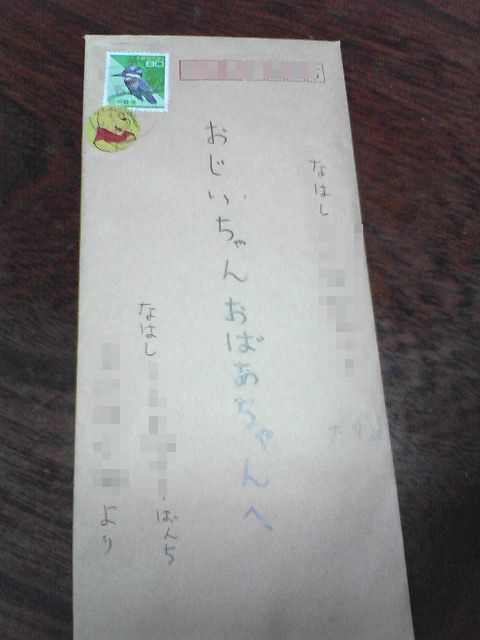 80
なはし
おじいちゃんおばあちゃんへ
なはし
ばんち
より